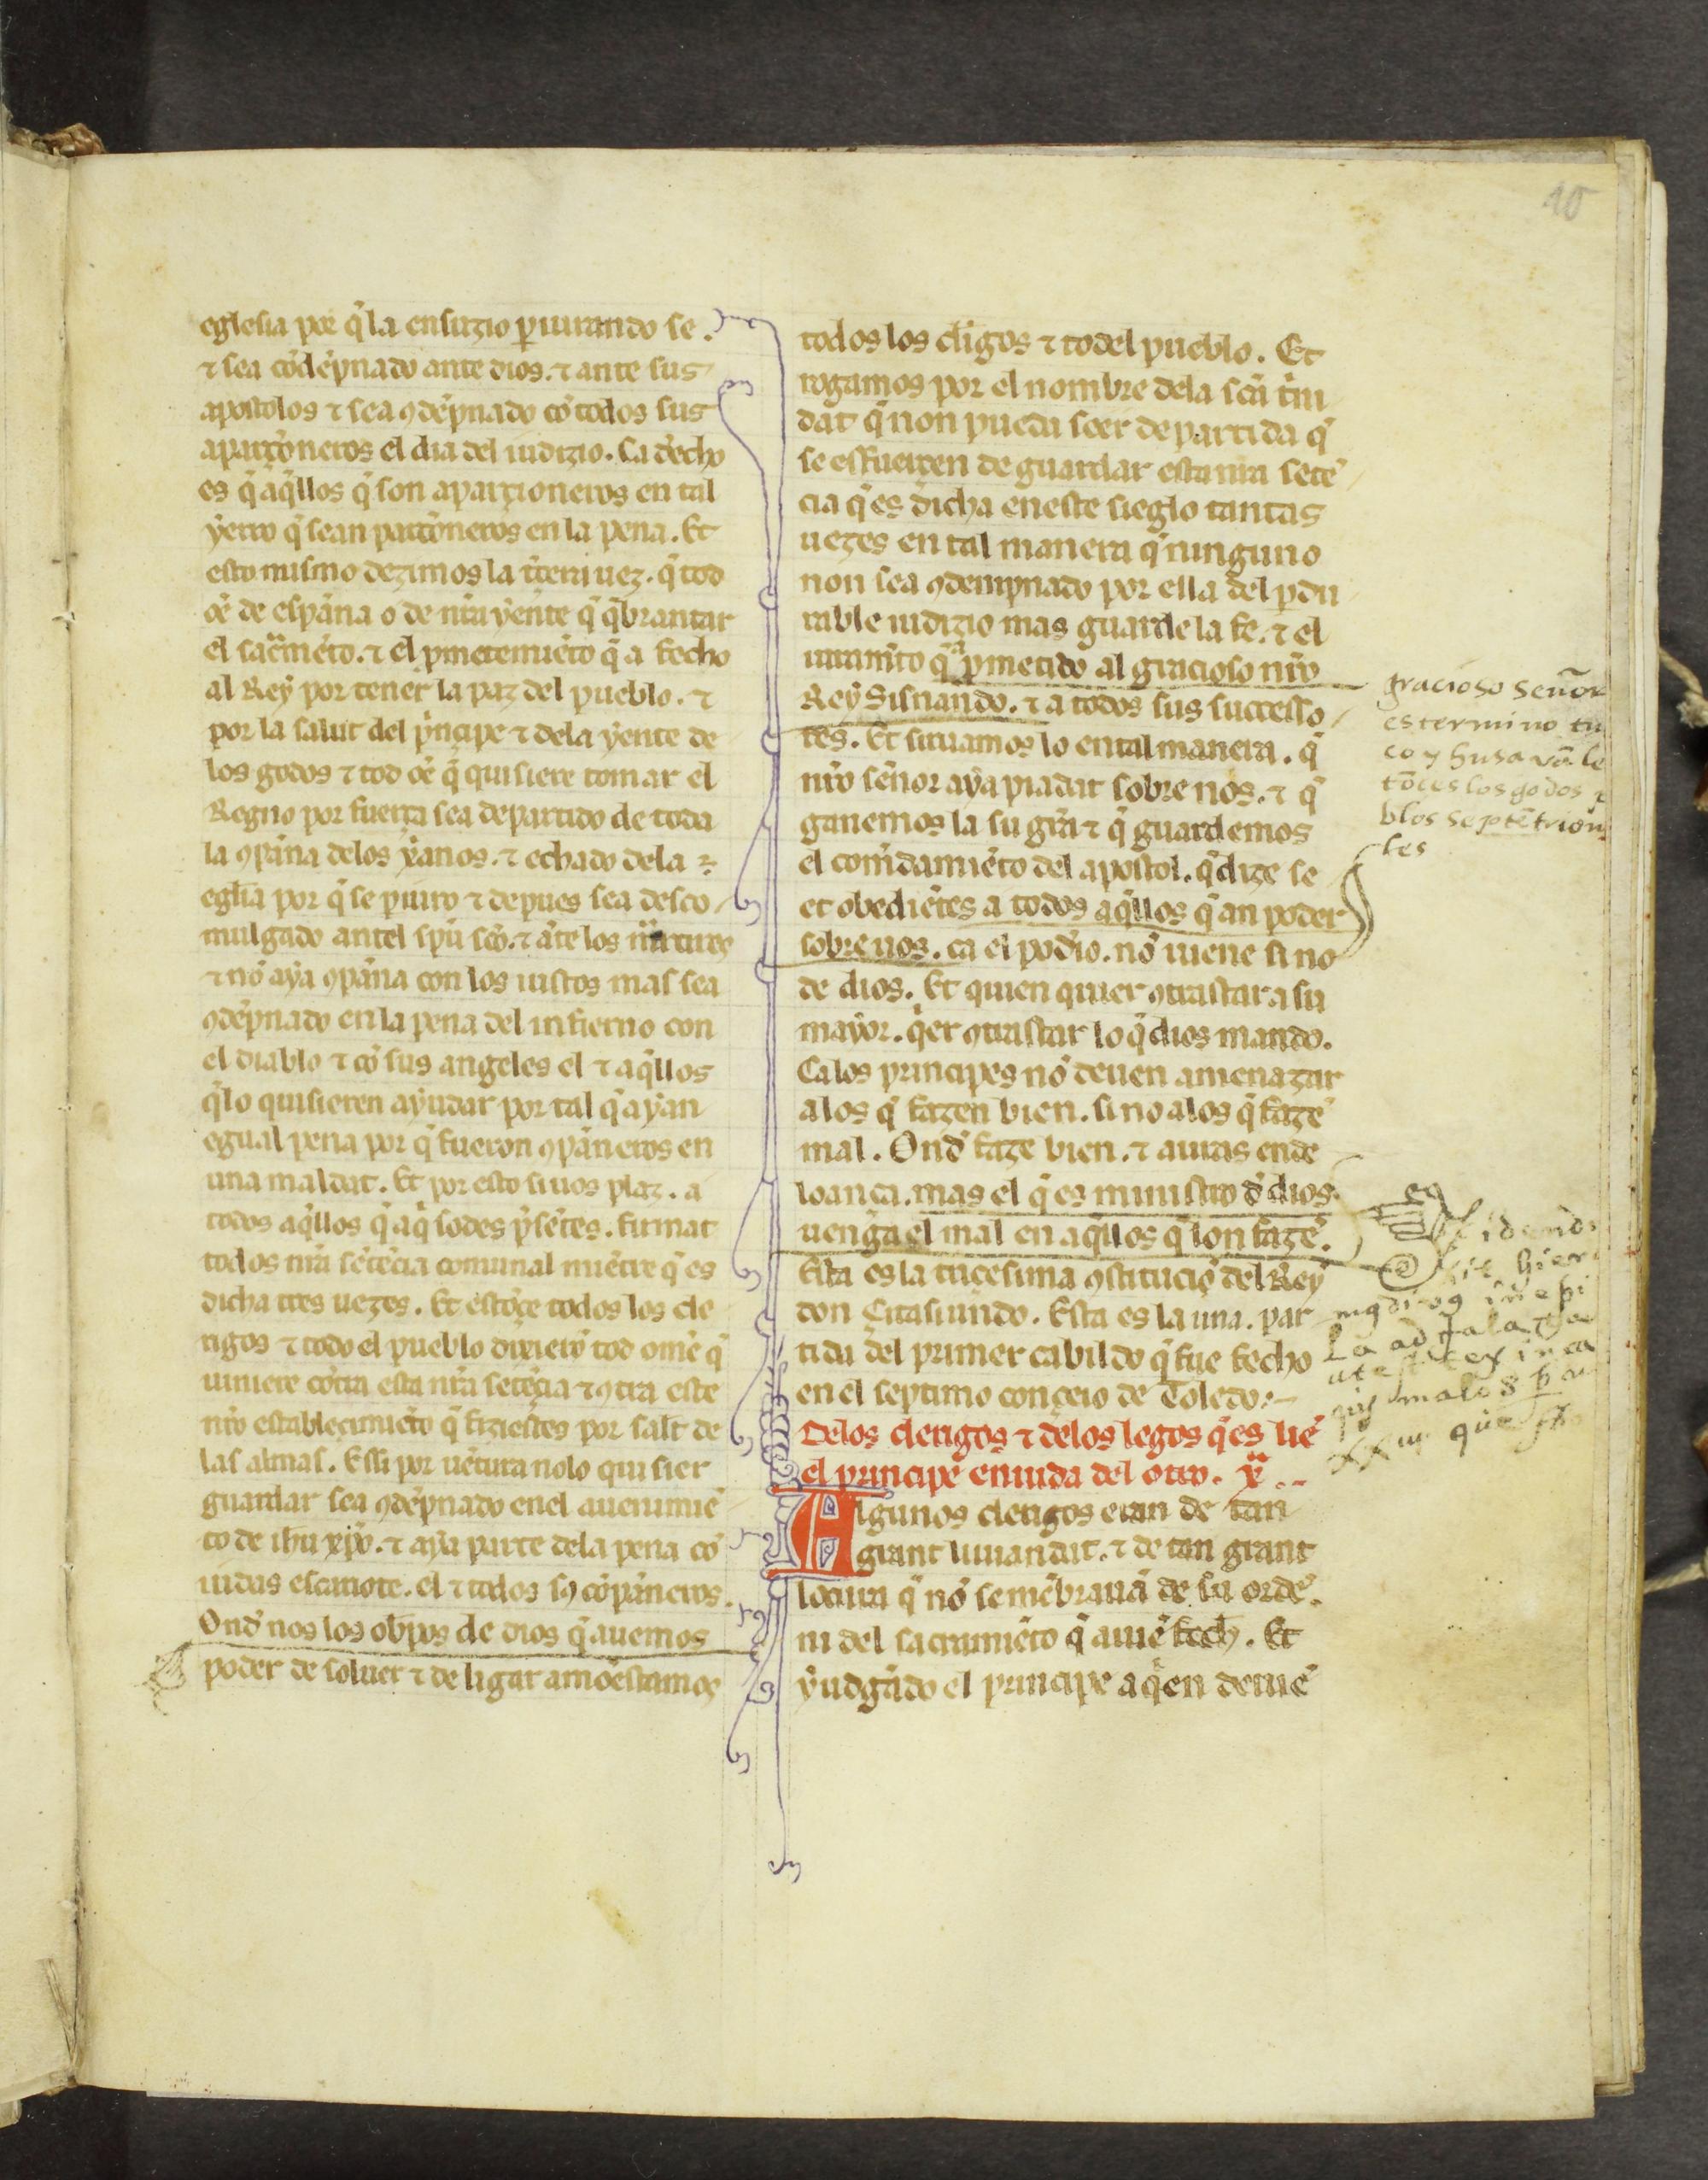 10
eglesia por q̄ la ensuzio ꝑiurando se.
⁊ sea cōdēpnado ante dios. ⁊ ante sus
apostolos ⁊ sea ꝯdēpnado cō todos sus
aparçoneros el dia del iudizio. Ca derecho
es q̄ aq̄llos q̄ son aparçioneros en tal
yerro q̄ sean parçoneros en la pena. Et
esto mismo dezimos la t̃cera uez. q̄ tod
oē de espāna o de nr̄a yente q̄ q̄brantar
el sac̃mēto. ⁊ el ꝓmetemiēto q̄ a fecho
al Rey por tener la paz del pueblo. ⁊
por la salut del p̃ncipe ⁊ dela yente de
los godos ⁊ tod oē q̄ quisiere tomar el
Regno por fuerça sea departido de toda
la ꝯpāna delos xp̄anos. ⁊ echado dela
egl̃ia por q̄ se ꝑiuro ⁊ depues sea desco
mulgado antel sp̄u sc̄o. ⁊ āte los martires
⁊ nō aya ꝯpāna con los iustos mas sea
ꝯdēpnado en la pena del infierno con
el diablo ⁊ cō sus angeles el ⁊ aq̄llos
q̄ lo quisieren ayudar por tal q̄ ayan
egual pena por q̄ fueron ꝯpāneros en
una maldat. Et por esto si uos plaz. a
todos aq̄llos q̄ aq̄ sodes p̃sētes. firmat
todos nr̄a sētēcia comunal mētre q̄ es
dicha tres uezes. Et estōçe todos los cle
rigos ⁊ todo el pueblo dixierō tod omē q̄
uiniere cōtra esta nr̄a setēçia ⁊ ꝯtra este
nr̄o establecimiēto q̄ fiziestes por salt de
las almas. Essi por uētura nolo quisier
guardar sea ꝯdēpnado enel auenimiē
to de ih̄u xp̄o. ⁊ aya parte dela pena cō
iudas escariote. el ⁊ todos sꝯ cōpāneros.
Ond̄ nos los obp̄os de dios q̄ auemos
poder de soluer ⁊ de ligar amoestamos
todos los cl̃igos ⁊ todel pueblo. Et
rogamos por el nombre dela sc̄a t̃ni
dat q̄ non pueda seer departida q̄
se esfuerçen de guardar esta nr̄a setē
cia q̄ es dicha eneste sieglo tantas
uezes en tal manera q̄ ninguno
non sea ꝯdempnado por ella del ꝑdu
rable iudizio mas guarde la fe. ⁊ el
iuramīto q̄ a ꝓmetido al gracioso nr̄o
Rey Sisnando. ⁊ a todos sus successo
res. Et siruamos lo en tal manera. q̄
nr̄o señor aya piadat sobre nos. ⁊ q̄
ganemos la su gr̄a ⁊ q̄ guardemos
el comādamiēto del apostol. q̄ dize se
et obediētes a todos aq̄llos q̄ an poder
sobre uos. ca el poderio. nō uiene si no
de dios. Et quien quier ꝯtrastar a su
mayor. q̄er ꝯtrastar lo q̄ dios mando.
Ca los principes nō deuen amenazar
alos q̄ fazen bien. si no alos q̄ fazē
mal. Ond̄ faze bien. ⁊ auras ende
loança. mas el q̄ es ministro d̄ dios.
uenga el mal en aq̄llos q̄ lon fazē.
Esta es la triçesima ꝯstituciō del Rey
don Çitasiundo. Esta es la una. par
tida del primer cabildo q̄ fue fecho
en el septimo conçeio de Toledo:-
Delos clerigos ⁊ delos legos q̄ es uiē
el principe en uida del otro. xª.
Algunos clerigos eran de tan
grant liuiandat. ⁊ de tan grant
locura q̄ nō se mēbrauā de su ordē.
ni del sacramiēto q̄ auiē fech̄. Et
yudgādo el principe a q̄en deuiē
gracioso señor
es termino tu
co y husavā le
tōces los godos p
blos septētriona
les